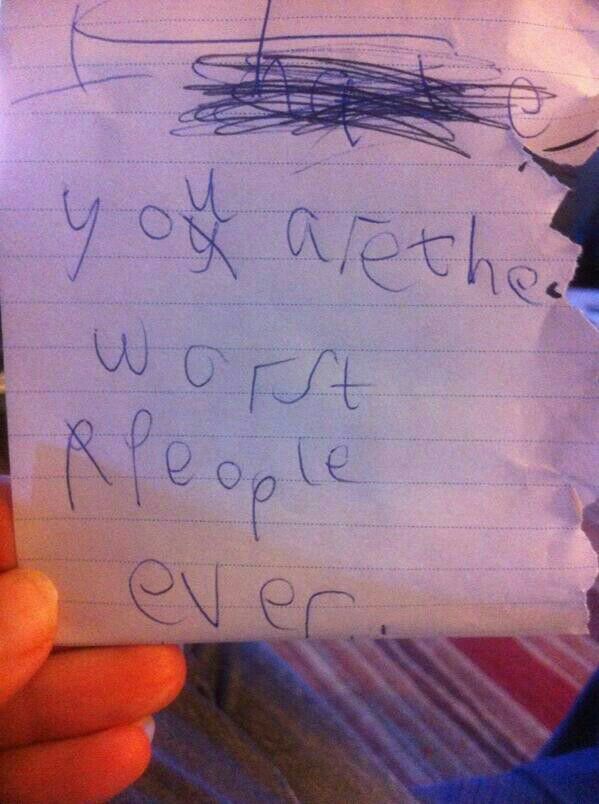 I hate
you are the
worst
people
ever.